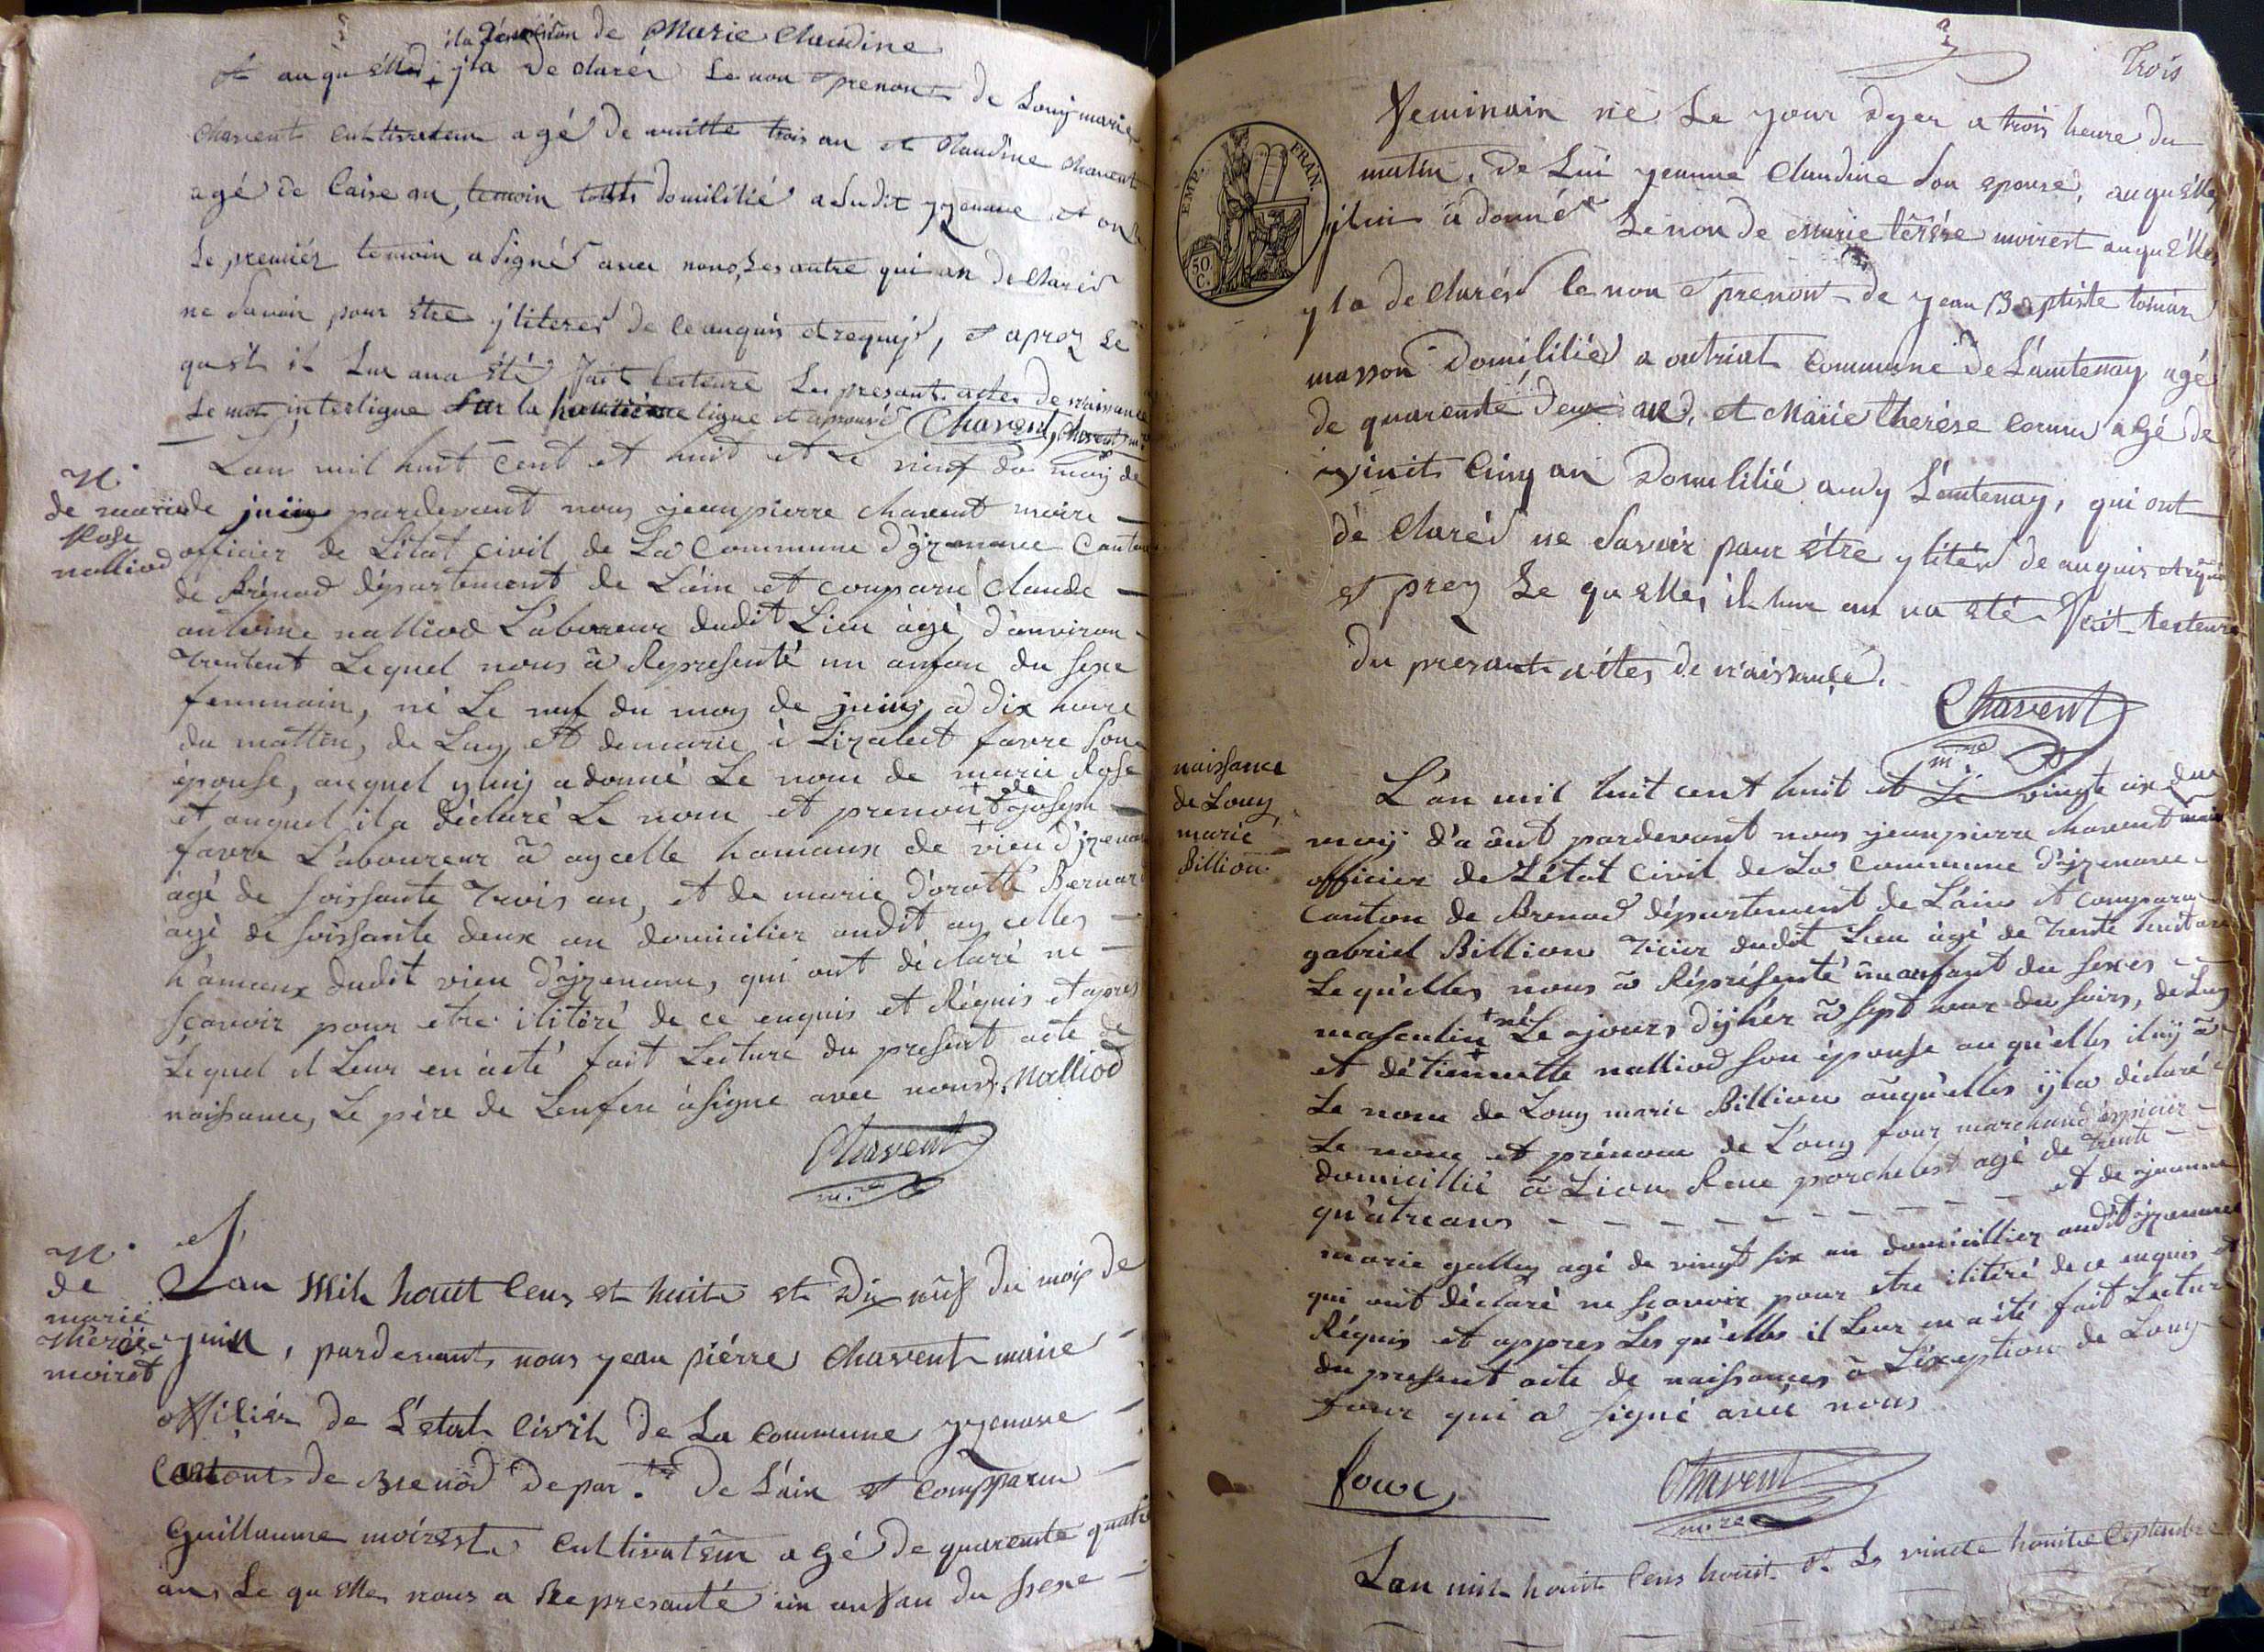 de Marie Claudine
et auquelles yla declarér Le non et prenont de Louy marie
Chavent cultivateur agé de trois an et Claudine Chavent
agé de an, temoin touts domilitié a dudit yzenave et on
Le premiér temoin a signés avec nous, Les autre qui an declarés
ne savoir pour étre ylliteres de ce anquis et requis, et aprez Le
quest il Lur ana été fait lecteure Lu presant actes de naissance
Le mot interligne sur la ligne et aprouvé Chavent, Chavent m.re
N.
de marie
Rose
nalliod
L'an mil huit Cent et huit et Le nuf du moy de
de juin pardevant nous jeanpierre chavent maire
officier de L'état Civil de La Commune d'yzenave Canton
de Brénod département de L'ain et comparu Claude
antoine nalliod L'aboureur dudit Lieu àgé d'anviron
trentent Lequel nous à Représenté un anfan du sexe
femmain, né Le nuf du moy de juin, à dix heure
du mattin, de Luy et de marie è Lizabet favre son
épouse, auquel yluy a donné Le nom de marie Rose
et auquel il a déclaré Le nom et prenont de joseph
favre L'aboureur à aycelle hamaux de vieu d'yzenave
àgé de soissante trois an, et de marie d'orotté Bernard
àgé de soissante deux an domicilier audit ay celles
h'amaux dudit vieu d'yzenave, qui ont déclaré ne
sçavoir pour etre ilitéré de ce enquis et Réquis et apres
Lequel il Leur en àété fait Lecture du present acte de
naissance, Le père de Lenfen à signe avec nous. Nalliod
Chavent
m.re
N.
de
marie
Thérèse
moirest
Lan Mil huit Cens et huit et Dix nûf du mois de
juin, pardevant nous yean piérre Chavent maire
officiér de L'état Civil de La Commune yzenave
Cantont de Brenod depar.t de L'ain et Compparu
Guillaume moirest Cultivateur agé de quarente quatre
an, Le quelle nous a Represanté un anfan du sexe
3
Trois
EMP. FRAN.
50 C.
feminain né Le your dyer a trois heure du
matin, De Lui yeanne Claudine son epouse, auquélle
yluis a donné Le non de Marie térése moirest auquélle
yla declarér le non et prenont de yean Baptiste
masson domilitié a outriat Commune de Lantenay agé
de quarente deux an, et Marie therése agé de
vinit Cinq an Domilitié audy Lantenay, qui ont
dé Clarés ne Savoir pour étre yliter de anquis et requi
et prez Le quelle, il lur an na été fait lecteure
du presant actes de naissance.
Chavent
m.re
naissance
de Louy
marie
Billion
L'an mil huit cent huit et Le vingt six du
moy d'août pardevant nous jeanpierre chavent maire
officier de L'état Civil de La Commune d'yzenave
Canton de Brenod département de L'ain et comparu
gabriel Billion dudit Lieu àgé de trente huit ans
Lequ'elles nous à Réprésenté un anfant du sexes
masculin né Le jours d'yhér à sept heur du soirs, de Luy
et d'étiennette nalliod son épouse au qu'elles iluy à
Le nom de Louy marie Billion auqu'elles yla déclaré
Le nom et prénom de L'ouy four marchand épicier
domicillié à Lion Rue agé de trente
qu'atre ans - - - - - - - - - et de jeanne
marie galley agé de vingt six an domicillier audit yzenave
qui ont déclaré ne sçavoir pour etre ilitéré de ce enquis et
Réquis et appres Les qu'elle il Leur en a été fait Lecture
du present acte de naissances à L'exeption de Louy
four qui a signé avec nous
four
Chavent
m.re
Lan mil huit Cens huit et Le vincte huitte Septenbre